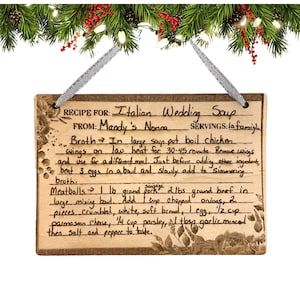 RECIPE FOR: Italian Wedding Soup
FROM: Mandy's Nonna SERVINGS: la famiglia
Broth → In large soup pot boil chicken
wings on low heat for 30-45 minutes. Remove wings
and use for a different meal. Just before adding other ingredients,
beat 3 eggs in a bowl and slowly add to simmering
broth.
Meatballs → 1 lb ground pork, 2 lbs ground beef in
large mixing bowl. Add 1 cup chopped onions, 2
pieces crumbled, white, soft bread, 1 egg, 1/2 cup
parmesan cheese, 1/4 cup parsley, 1 tbsp garlic minced
then salt and pepper to taste.